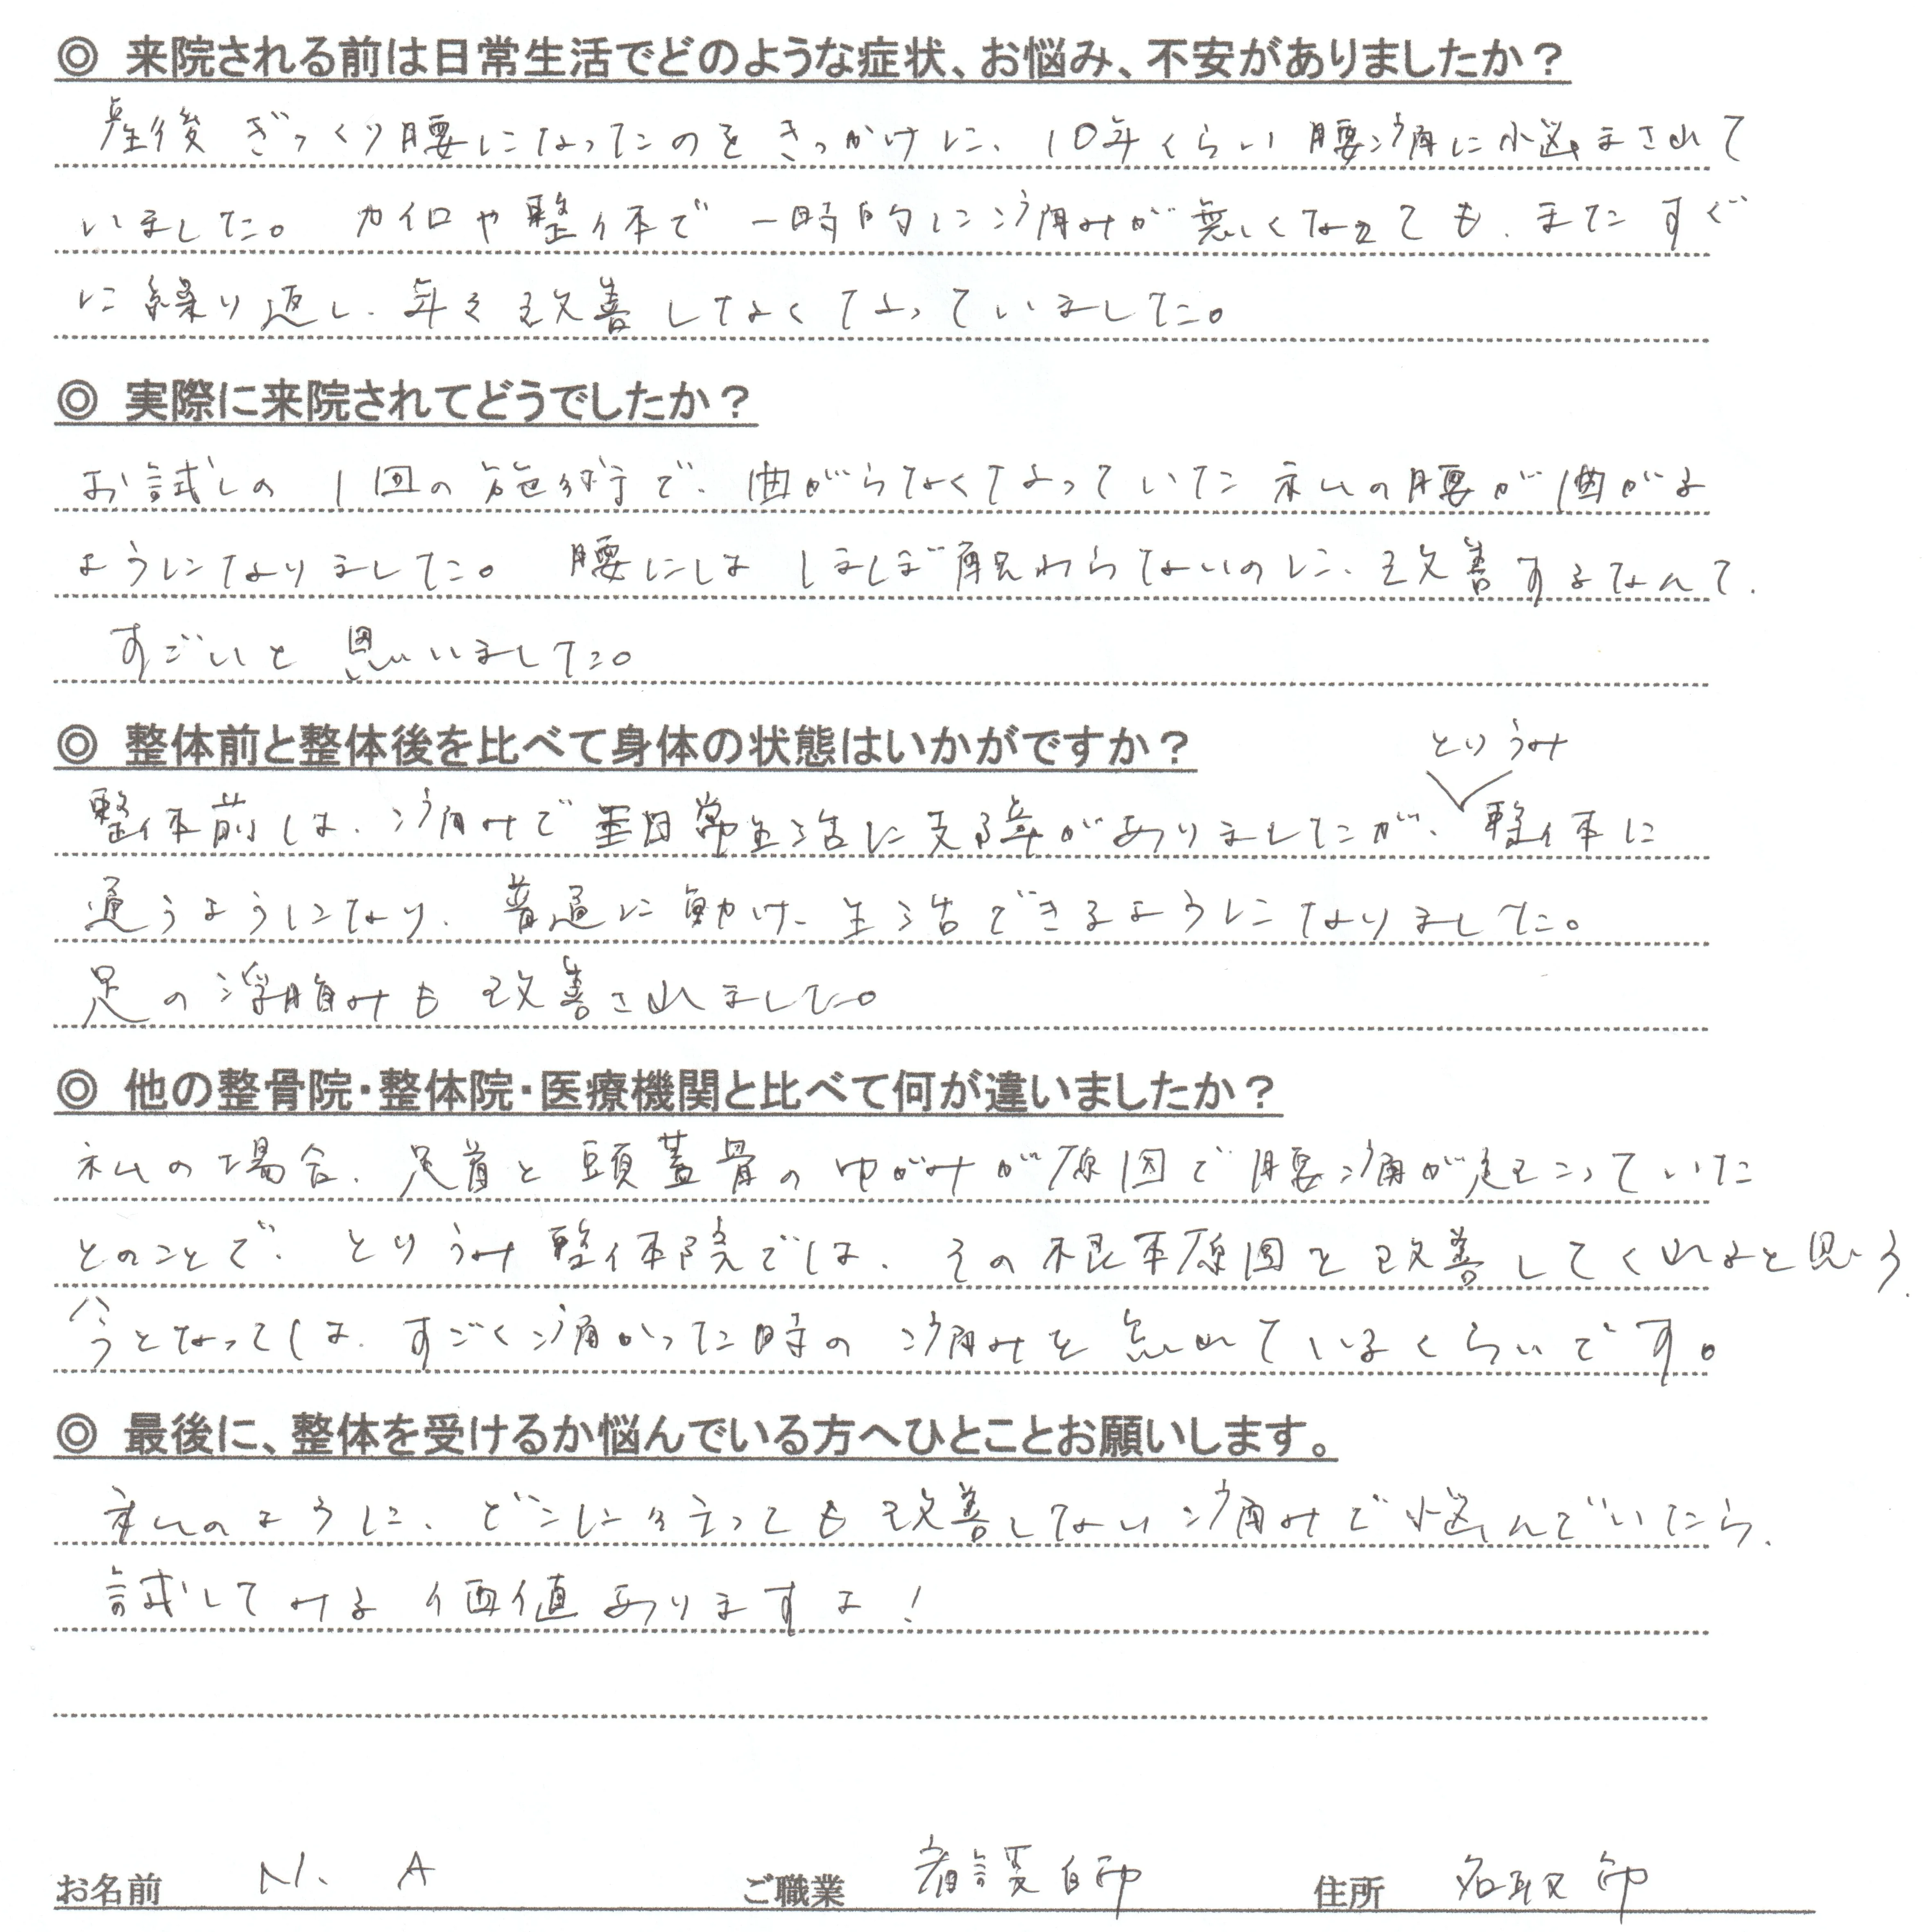 ◎ 来院される前は日常生活でどのような症状、お悩み、不安がありましたか？
産後 ぎっくり腰になったのをきっかけに、10年くらい腰痛に悩まされて
いました。カイロや整体で一時的に痛みが無くなっても、またすぐ
に繰り返し、年々改善しなくなっていました。
◎ 実際に来院されてどうでしたか？
お試しの1回の施術で、曲がらなくなっていた私の腰が曲がる
ようになりました。腰にはほぼ触わらないのに、改善するなんて、
すごいと思いました。
◎ 整体前と整体後を比べて身体の状態はいかがですか？
とりうみ
整体前は、痛みで日常生活に支障がありましたが、整体に
通うようになり、普通に動け、生活できるようになりました。
足の浮腫みも改善されました。
◎ 他の整骨院・整体院・医療機関と比べて何が違いましたか？
私の場合、足首と頭蓋骨のゆがみが原因で腰痛が起こっていた
とのことで、とりうみ整体院では、その根本原因を改善してくれると思う。
今となっては、すごく痛かった時の痛みを忘れているくらいです。
◎ 最後に、整体を受けるか悩んでいる方へひとことお願いします。
私のように、どこに行っても改善しない痛みで悩んでいたら、
試してみる価値ありますよ！
お名前 N. A ご職業 看護師 住所 名取市